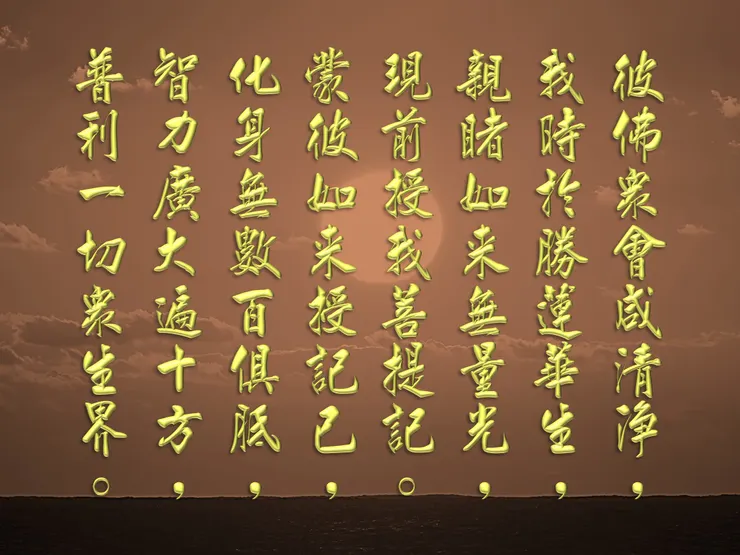 彼佛衆會咸清淨，
我時於勝蓮華生，
親睹如来無量光，
現前授我菩提記。
蒙彼如来授記已，
化身無數百俱胝，
智力廣大遍十方，
普利一切衆生界。